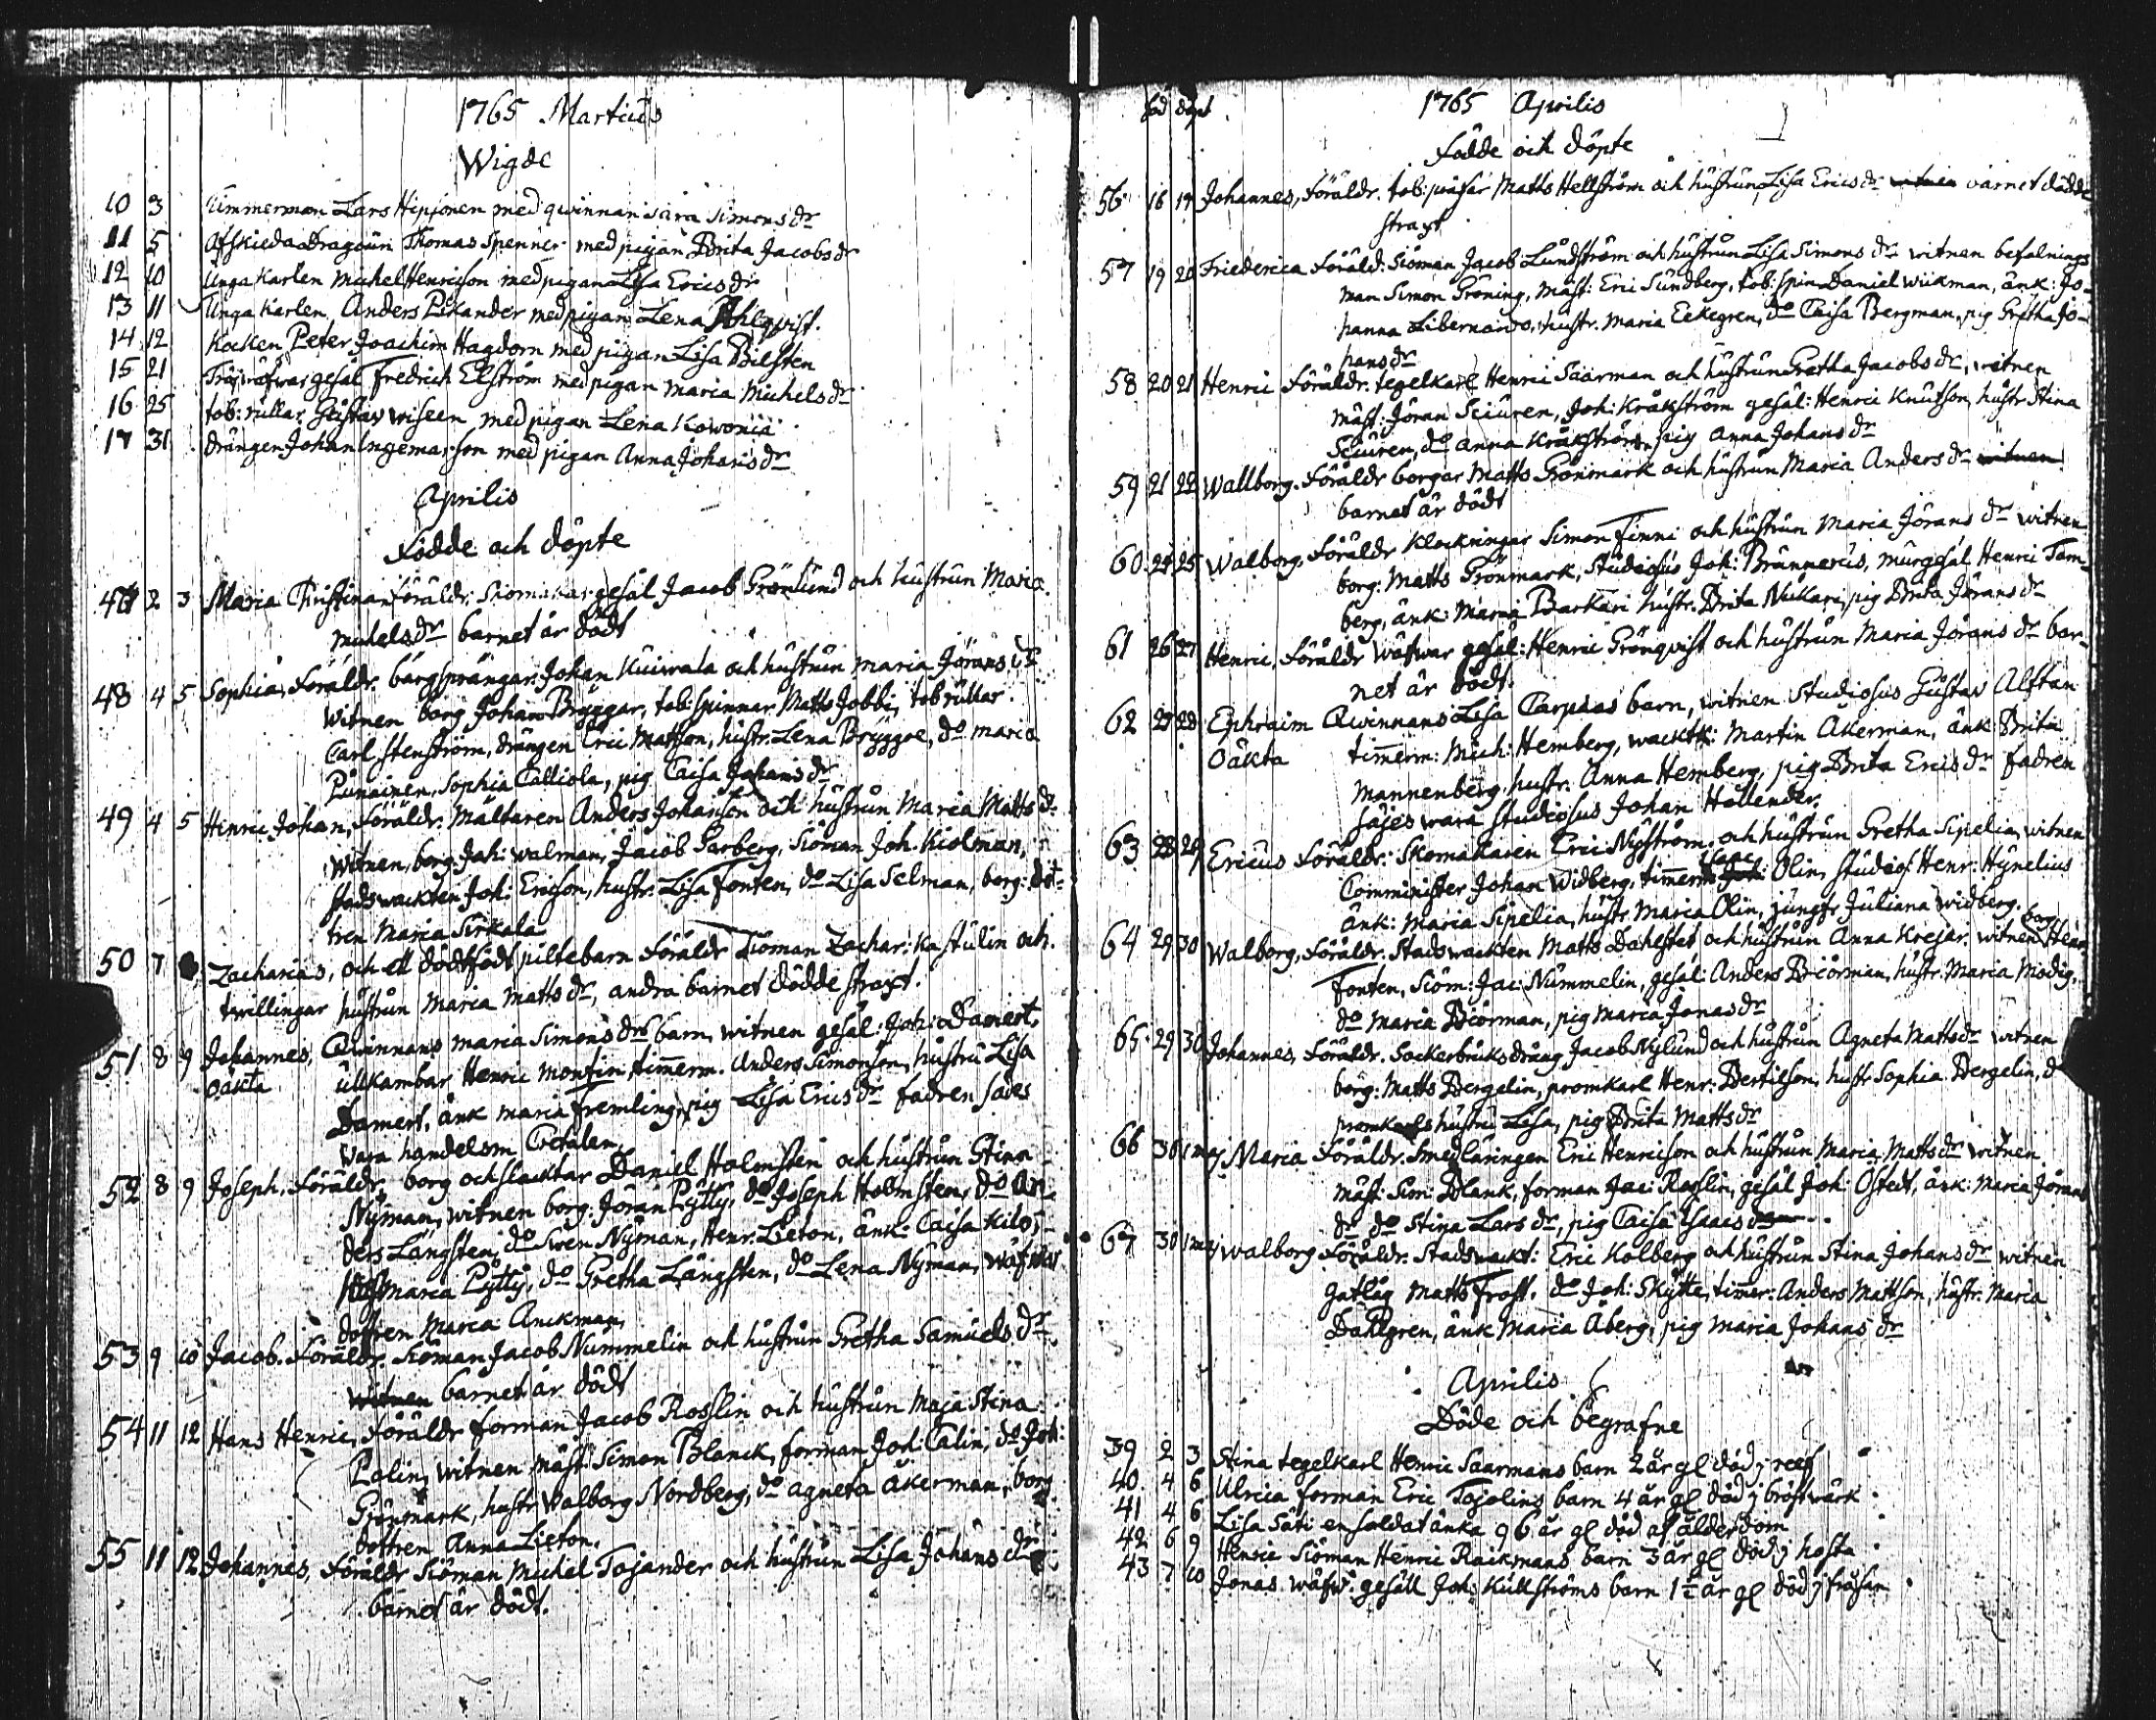 1765 Martius
Wigde
10 3 Timmerman Lars Hipponen med qwinnan Sara Simons dr
11 5 Afskieda Dragoun Thomas Spenner med pigan Brita Jacobs dr
12 10 Unga Karlen Michel Henricson med pigan Lisa Erics dr
13 11 Unga Karlen Anders Pikander med pigan Lena Ahlqvist.
14 12 Kocken Peter Joachim Hagdorn med pigan Lisa Bilsten
15 21 gesäl Fredrich Elström med pigan Maria Michels dr
16 25 tob: rullar Gustav Wiseen med pigan Lena Kowonia
17 31 drängen Johan Ingemarson med pigan Anna Johans dr
Aprilis
Födde och döpte
47 2 3 Maria Christina, Föräldr: Skomakar gesäl Jacob Grönlund och hustrun Maria
Michels dr barnet är dödt
48 4 5 Sophia, Föräldr. bärgsprängar Johan Kuiwala och hustrun Maria Jörans dr
Witnen borg Johan Bryggar, tob: spinnar Matts Jobbi, tob rullar
Carl Stenström, drängen Eric Mattson, hustr. Lena Bryggae, do Maria
Punainen, Sophia Calliola, pig Caisa Johans dr
49 4 5 Henric Johan, Föräldr. Mältaren Anders Johanson och hustrun Maria Matts dr
Witnen, borg. Joh: Walman, Jacob Garberg, Siöman Joh. Kiolman,
stadswackten Joh: Ericson, hustr. Lisa Fonten, do Lisa Selman, borg: dot-
tren Maria Sirkala
50 7 Zacharias, och ett dödtfödt piltebarn Föräldr Siöman Zachar: Kastulin och
twillingar hustrun Maria Matts dr, andra barnet dödde straxt.
51 8 9 Johannes, Qwinnans Maria Simons drs barn, witnen gesäl: Joh: Damert,
oäkta ullkambar Henric Montin, timerm. Anders Simonson, hustru Lisa
Damert, änk Maria Fremling, pig Lisa Erics dr fadren säjes
wara handelsm Cretalen
52 8 9 Joseph, Föräldr. borg och slacktar Daniel Holmsten och hustrun Stina
Nyman, witnen borg: Jöran Pytty, do Joseph Holmsten, do An-
ders Långsten, do Swen Nyman, Henr. Lieton, änk: Caisa Kilo,
Maria Pytty, do Gretha Långsten, do Lena Nyman, wäfwar
dottren Maria Anckman,
53 9 10 Jacob. Föräldr. Siöman Jacob Nummelin och hustrun Gretha Samuels dr
witnen barnet är dödt
54 11 12 Hans Henric, Föräldr forman Jacob Rosslin och hustrun Maja Stina
Palin, witnen mäst. Simon Blanck, forman Joh: Calin, do Joh:
Grönmark, hustr Walborg Nordberg, do Agneta Åkerman, borg
dottren Anna Lieton.
55 11 12 Johannes, Föräldr Siöman Michel Tojander och hustrun Lisa Johans dr
barnet är dödt.
föd döpt 1765 Aprilis
Födde och döpte
56 16 17 Johannes, Föräldr. tob: Matts Hellström och hustrun Lisa Erics dr witnen barnet dödde
straxt
57 19 20 Friederica Föräld: Siöman Jacob Lundström och hustrun Lisa Simons dr witnen befalnings
man Simon Gröning, mäst: Eric Sundberg, tob: spin Daniel Wikman, änk: Jo-
hanna Libernardo, hustr. Maria Eekegren, do Caisa Bergman, pig Gretha Jo-
hans dr
58 20 21 Henric Föräldr. tegelkarl Henric Saarman och hustrun Gretha Jacobs dr, witnen
Mäst: Jöran Sciuren, Joh: Kråkström gesäl: Henric Knutson, hustr Stina
Sciuren, do Anna Kråkström, pig Anna Johans dr
59 21 22 Wallborg. Föräldr borgar Matts Grönmark och hustrun Maria Anders dr witnen
barnet är dödt
60 24 25 Walborg, Föräldr Klockringar Simon Finni och hustrun Maria Jörans dr witnen
borg: Matts Grönmark, Studiosus Joh: Brännerus, murgesäl Henric Tam-
berg, änk: Maria Barkari hustr. Brita Nukari, pig Brita Jörans dr
61 26 27 Henric, Föräldr wäfwar gesäl: Henric Grönqvist och hustrun Maria Jörans dr bar-
net är dödt.
62 28 Ephraim Qwinnans Lisa Carpdas barn, witnen Studiosus Gustav Alftan
Oäkta timerm: Mich: Hemberg, wacktk: Martin Åkerman, änk Brita
Mannenberg, hustr. Anna Hemberg, pig Brita Erics dr fadren
säjes wara studiosus Johan Hollender.
63 28 29 Ericus Föräldr: Skomakaren Eric Nyström och hustrun Gretha Sipelia, witnen
Comminister Johan Widberg, timerm Olin, studios Henr: Hynelius
änk: Maria Sipelia, hustr. Maria Olin, jungfr Juliana Widberg.
64 29 30 Walborg, Föräldr. Stadswackten Matts Dahlstet och hustrun Anna Krejar. witnen borg Henr
Fonten, Siöm: Jac: Nummelin, gesäl: Anders Biörman, hustr. Maria Modig,
do Maria Biörman, pig Maria Jonas dr
65 29 30 Johannes, Föräldr. Sockerbruks dräng Jacob Nylund och hustrun Agneta Matts dr witnen
borg: Matts Bergelin, promkarl Henr: Bertilson, hustr Sophia Bergelin, do
promkarls hustru Lisa, pig Brita Matts dr
66 30 1 maj Maria Föräldr. Smedläringen Eric Henricson och hustrun Maria Matts dr witnen
mäst: Sim: Blank, forman Jac: Rosslin, gesäl Joh: Östedt, änk: Maria Jörans
dr do Stina Lars dr, pig Caisa Isaacs dr
67 30 1 maj Walborg Föräldr. Stadswackt: Eric Kolberg och hustrun Stina Johans dr witnen
Gatlåg Matts Frost. do Joh: Skytte, timer: Anders Mattson, hustr. Maria
Dahlgren, änk Maria Åberg, pig Maria Johans dr
Aprilis
Döde och begrafne
39 2 3 Stina tegelkarl Henric Saarmans barn 2 år gl död j reef
40 4 6 Ulricia forman Eric Tojolins barn 4 år gl död j bröstwärk
41 4 6 Lisa Säti en soldat änka 96 år gl död af ålderdom
42 6 9 Henric Siöman Henric Raickmans barn 3 år gl död j hosta
43 7 10 Jonas wäfw: gesäll Joh: Kullströms barn 1½ år gl död j fråsan